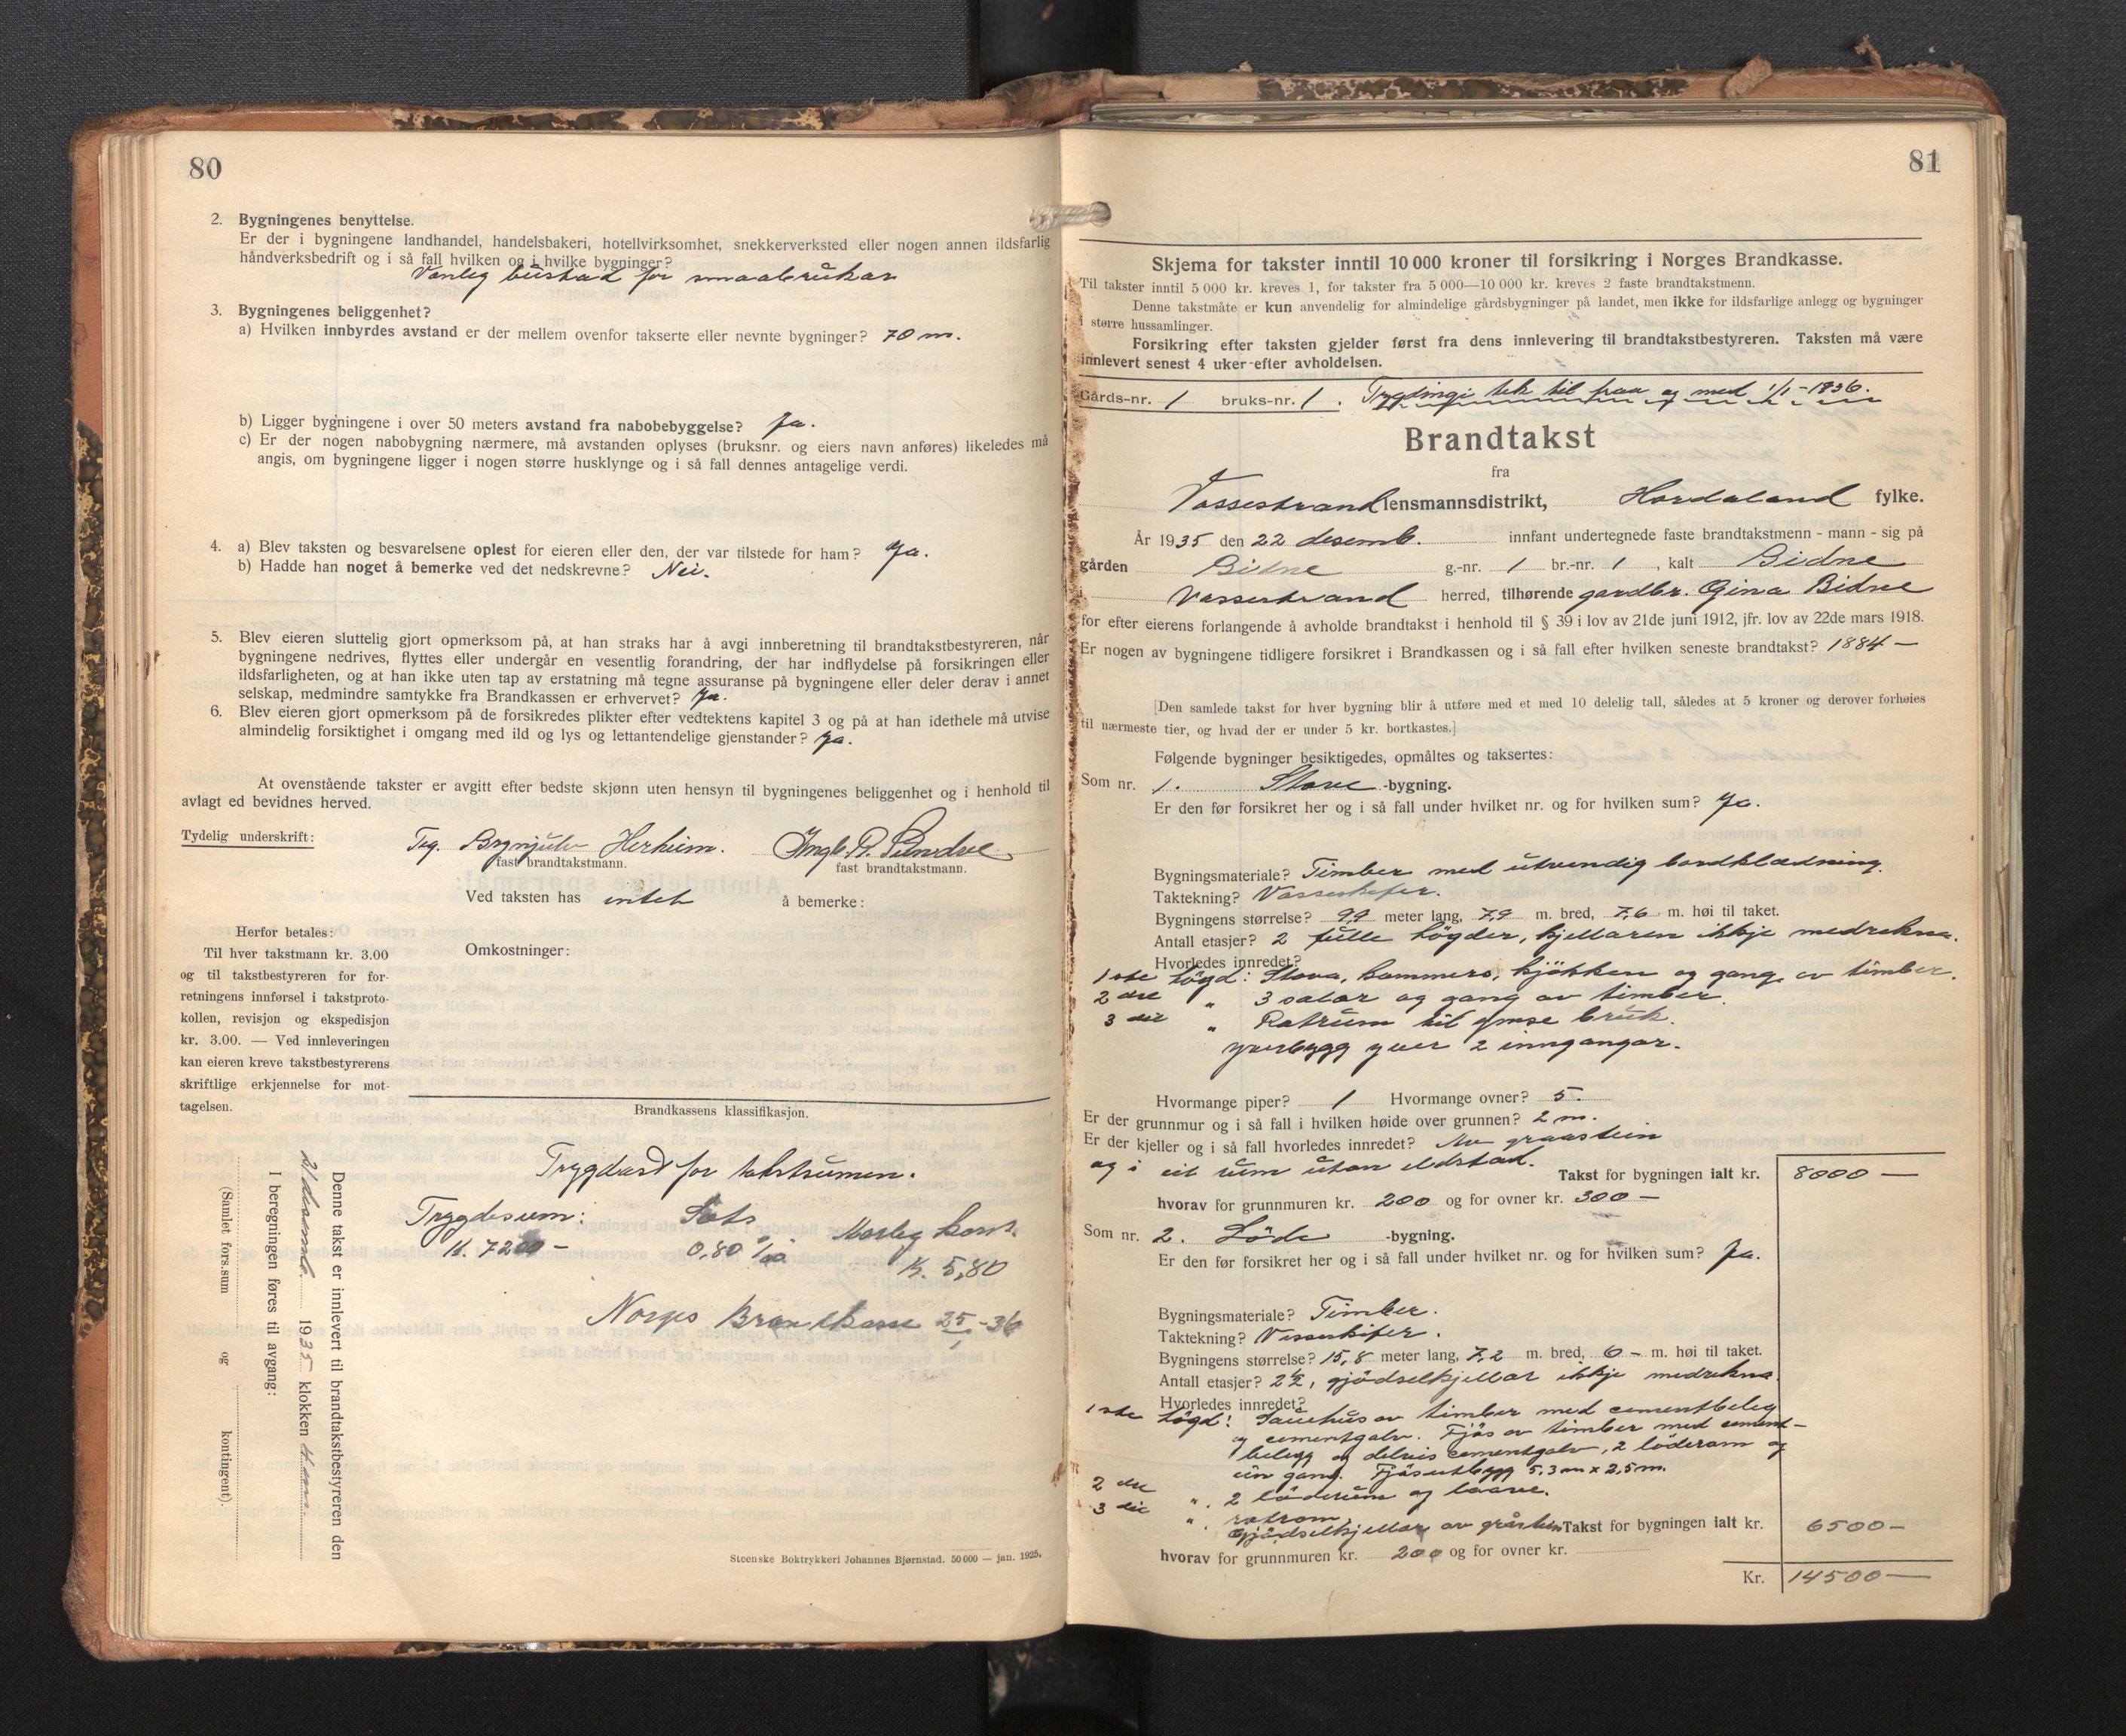 80
2. Bygningenes benyttelse.
Er der i bygningene landhandel, handelsbakeri, hotellvirksomhet, snekkerverksted eller nogen annen ildsfarlig
håndverksbedrift og i så fall hvilken og i hvilke bygninger?
Vanleg bustad for smaabrukar
3. Bygningenes beliggenhet?
a) Hvilken innbyrdes avstand er der mellem ovenfor takserte eller nevnte bygninger? 70 m.
b) Ligger bygningene i over 50 meters avstand fra nabobebyggelse? Ja.
c) Er der nogen nabobygning nærmere, må avstanden oplyses (bruksnr. og eiers navn anføres) likeledes må
angis, om bygningene ligger i nogen større husklynge og i så fall dennes antagelige verdi.
4. a) Blev taksten og besvarelsene oplest for eieren eller den, der var tilstede for ham? Ja.
b) Hadde han noget å bemerke ved det nedskrevne? Nei.
5. Blev eieren sluttelig gjort opmerksom på, at han straks har å avgi innberetning til brandtakstbestyreren, når
bygningene nedrives, flyttes eller undergår en vesentlig forandring, der har indflydelse på forsikringen eller
ildsfarligheten, og at han ikke uten tap av erstatning må tegne assuranse på bygningene eller deler derav i annet
selskap, medmindre samtykke fra Brandkassen er erhvervet? Ja.
6. Blev eieren gjort opmerksom på de forsikredes plikter efter vedtektens kapitel 3 og på at han idethele må utvise
almindelig forsiktighet i omgang med ild og lys og lettantendelige gjenstander? Ja.
At ovenstående takster er avgitt efter bedste skjønn uten hensyn til bygningenes beliggenhet og i henhold til
avlagt ed bevidnes herved.
Tydelig underskrift:
Teg. Brynjulv Herheim. Ingb. B. Sundve
fast brandtakstmann. fast brandtakstmann.
Ved taksten has intet å bemerke:
Herfor betales:
Til hver takstmann kr. 3.00
og til takstbestyreren for for-
retningens innførsel i takstproto-
kollen, revisjon og ekspedisjon
kr. 3.00. — Ved innleveringen
kan eieren kreve takstbestyrerens
skriftlige erkjennelse for mot-
tagelsen.
Omkostninger:
Brandkassens klassifikasjon.
Trygdast for takstsumen.
Trygdesum: Sats Aarleg kont.
K. 7200 – 0,80 ‰ K. 5,80
Norges Brandkasse 25/1-36
Denne takst er innlevert til brandtakstbestyreren den
21 desemb. 1935 klokken 4 em.
I beregningen føres til avgang:
(Samlet fors.sum og kontingent).
Steenske Boktrykkeri Johannes Bjørnstad. 50 000 — jan. 1925.
81
Skjema for takster inntil 10 000 kroner til forsikring i Norges Brandkasse.
Til takster inntil 5 000 kr. kreves 1, for takster fra 5 000—10 000 kr. kreves 2 faste brandtakstmenn.
Denne takstmåte er kun anvendelig for almindelige gårdsbygninger på landet, men ikke for ildsfarlige anlegg og bygninger
i større hussamlinger.
Forsikring efter taksten gjelder først fra dens innlevering til brandtakstbestyreren. Taksten må være
innlevert senest 4 uker efter avholdelsen.
Gårds-nr. 1 bruks-nr. 1. Trygdingi tek til fraa og med 1/1-1936.
Brandtakst
fra
Vossestrand lensmannsdistrikt, Hordaland fylke.
År 1935 den 22 desemb. innfant undertegnede faste brandtakstmenn - mann - sig på
gården Bidne g.-nr. 1 br.-nr. 1, kalt Bidne
i Vossestrand herred, tilhørende gardbr. Gina Bidne
for efter eierens forlangende å avholde brandtakst i henhold til § 39 i lov av 21de juni 1912, jfr. lov av 22de mars 1918.
Er nogen av bygningene tidligere forsikret i Brandkassen og i så fall efter hvilken seneste brandtakst? 1884 —
[Den samlede takst for hver bygning blir å utføre med et med 10 delelig tall, således at 5 kroner og derover forhøies
til nærmeste tier, og hvad der er under 5 kr. bortkastes.]
Følgende bygninger besiktigedes, opmåltes og taksertes:
Som nr. 1. Stove -bygning.
Er den før forsikret her og i så fall under hvilket nr. og for hvilken sum? Ja.
Bygningsmateriale? Timber med utvendig bordklædning.
Taktekning? Vosseskifer.
Bygningens størrelse? 9,9 meter lang, 7,9 m. bred, 7,6 m. høi til taket.
Antall etasjer? 2 fulle högder, kjellaren ikkje medrekna.
Hvorledes innredet?
1ste högd: Stova, kammers, kjökken og gang, av timber.
2dre " 3 salar og gang av timber.
3die " Rotrum til ymse bruk.
Yverbygg yver 2 inngangar.
Hvormange piper? 1 Hvormange ovner? 5.
Er der grunnmur og i så fall i hvilken høide over grunnen? 2 m.
Er der kjeller og i så fall hvorledes innredet? Av graastein
og i eit rum utan eldstad. Takst for bygningen ialt kr. 8000 —
hvorav for grunnmuren kr. 200 og for ovner kr. 300 —
Som nr. 2. Löde -bygning.
Er den før forsikret her og i så fall under hvilket nr. og for hvilken sum? Ja.
Bygningsmateriale? Timber.
Taktekning? Vosseskifer.
Bygningens størrelse? 15,8 meter lang, 7,2 m. bred, 6 – m. høi til taket.
Antall etasjer? 2½, gjödselkjellar ikkje medrekna.
Hvorledes innredet?
1ste högd: Sauehus av timber med cementbeleg
og cementgolv. Fjös av timber med cement-
belegg og delvis cementgolv, 2 löderom og
ein gang. Fjösutbygg 5,3 m x 2,5 m.
2dre ". 2 löderum og laave.
3die ". rotrom,
Gjödselkjellar av gråstein Takst for bygningen ialt kr. 6500 –
hvorav for grunnmuren kr. 200 og for ovner kr.
Kr. 14500 —